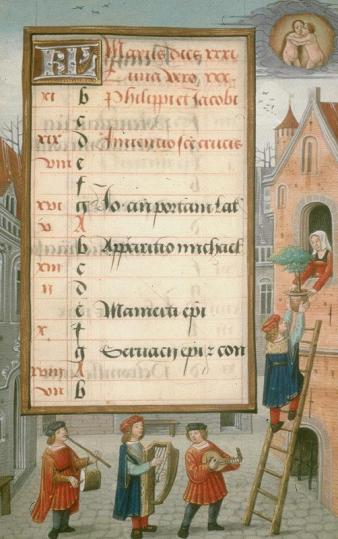 KL Maius dies xxxi
Luna xxx
xi b Philippi et Jacobi
c
xix d Inventio scē crucis
viii e
f
xvi g Jo. añ portam lat
v A
b Apparitio michael
xiii c
ii d
e Mamerti epī
x f
g Servacij epī z con
xviii A
vii b